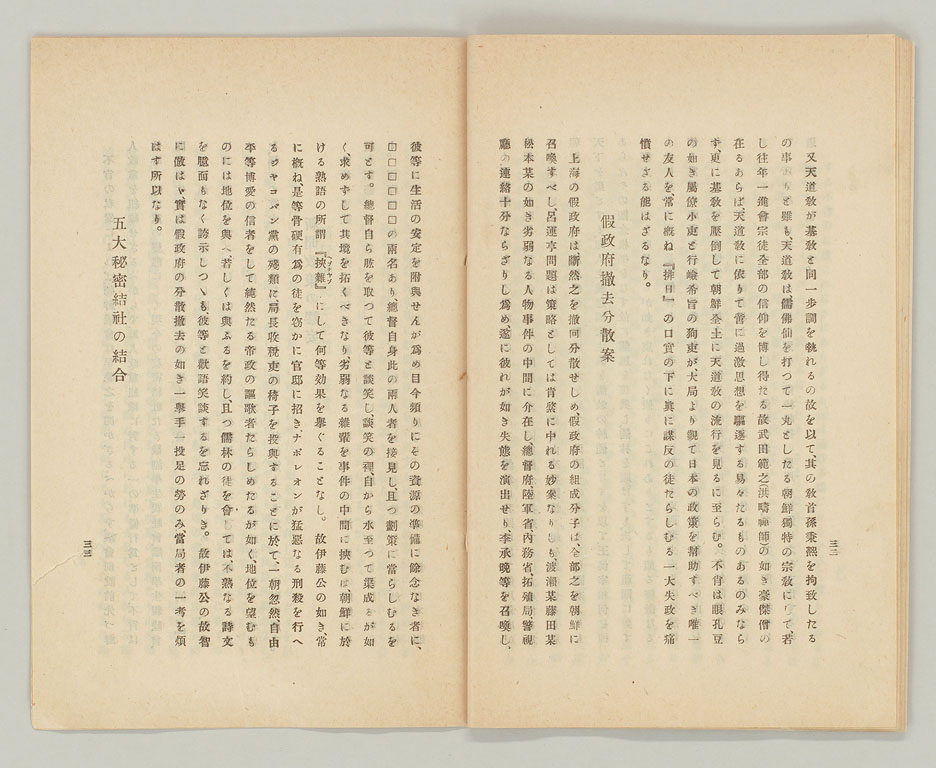 又天道敎が基敎と同一步調を執れるの故を以て、其の敎首孫秉熙を拘致したる
の事ありと雖も、天道敎は、儒佛仙を打つて一丸としたる朝鮮獨特の宗敎にして、若
し往年一進會宗徒全部の信仰を博し得たる故武田範之(洪疇禪師)の如き豪傑僧の
在るあらば、天道敎に依りて啻に過激思想を驅逐する易々たるものあるのみなら
ず、更に基敎を壓倒して朝鮮全土に天道敎の流行を見るに至らむ。不肖は眼孔豆
の如き屬僚小吏と行嶮希旨の狗吏が、大局より觀て日本の政策を幇助すべき唯一
の友人を、常に槪ね『排日』の口實の下に眞に謀反の徒たらしむる一大失政を痛
憤せざる能はざるなり。
假政府撤去分散案
上海の假政府は斷然之を撤回分散せしめ、假政府の組成分子は、全部之を朝鮮に
召喚すべし、呂運亨問題は策略としては肯綮に中れる妙案なりしも、渡瀨某藤田某
秘本某の如き劣弱なる人物事件の中間に介在し、總督府陸軍省內務省拓殖局警視
廳の連絡十分ならざりし爲め、遂に彼れが如き失態を演出せり李承晩等を召喚し、
三二
彼等に生活の安定を附與せんが爲め目今頻りにその資源の準備に餘念なき者に、
□□□□□□の兩名あり、總督自身此の兩人者を接見し、且つ劃策に當らしむるを
可とす。總督自ら肱を取つて彼等と談笑し、談笑の裡自から水至つて渠成るが如
く、求めずして其境を拓くべきなり劣弱なる雜輩を事件の中間に挾むは朝鮮に於
ける熟語の所謂『挾雜』にして何等効果を擧ぐることなし。故伊藤公の如き、常
に槪ね是等骨硬有爲の徒を窃かに官邸に招き、ナポレオンが猛惡なる刑殺を行へ
るジャコバン黨の殘類に局長收稅吏の椅子を投與することに於て、一朝忽然、自由
平等博愛の信者をして純然たる帝政の謳歌者たらしめたるが如く、地位を望むも
のには地位を與へ若しくは與ふるを約し、且つ儒林の徒を會しては、不熟なる詩文
を臆面もなく誇示しつゝも、彼等と歡語笑談するを忘れざりき。故伊藤公の故智
に倣はゞ、實は假政府の分散撤去の如き一擧手一投足の勞のみ、當局者の一考を煩
はす所以なり。
五大秘密結社の結合
三三